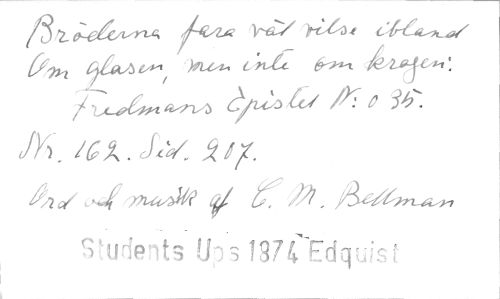 Bröderna fara väl vilse ibland
Om glasen, men inte om kragen:
Fredmans Epistel N:o 35.
Nr. 162. Sid. 207.
Ord och musik af C. M. Bellman
Students Ups 1874 Edquist